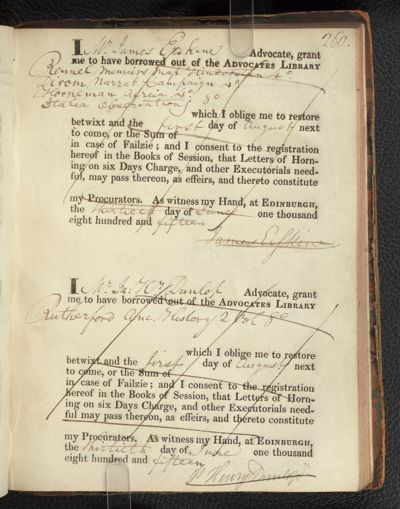 260.
I Mr. James Erskine Advocate, grant
me to have borrowed out of the ADVOCATES LIBRARY
Rennel Memoirs Map Hindoostan 4o.
Dirom Narrat. Campaign 4o
Horneman Africa 4o.
Observations 8o
which I oblige me to restore
betwixt and the first day of August next
to come, or the Sum of
in case of Failzie; and I consent to the registration
hereof in the Books of Session, that Letters of Horn-
ing on six Days Charge, and other Executorials need-
ful, may pass thereon, as effeirs, and thereto constitute
my Procurators. As witness my Hand, at EDINBURGH,
the thirtieth day of June one thousand
eight hundred and fifteen
James Erskine
I Mr. Ja: Hy. Dunlop Advocate, grant
me to have borrowed out of the ADVOCATES LIBRARY
Rutherford Anc. History 2 Vol 8o
which I oblige me to restore
betwixt and the first day of August next
to come, or the Sum of
in case of Failzie; and I consent to the registration
hereof in the Books of Session, that Letters of Horn-
ing on six Days Charge, and other Executorials need-
ful, may pass thereon, as effeirs, and thereto constitute
my Procurators. As witness my Hand, at EDINBURGH,
the thirtieth day of June one thousand
eight hundred and fifteen
Js Henry Dunlop